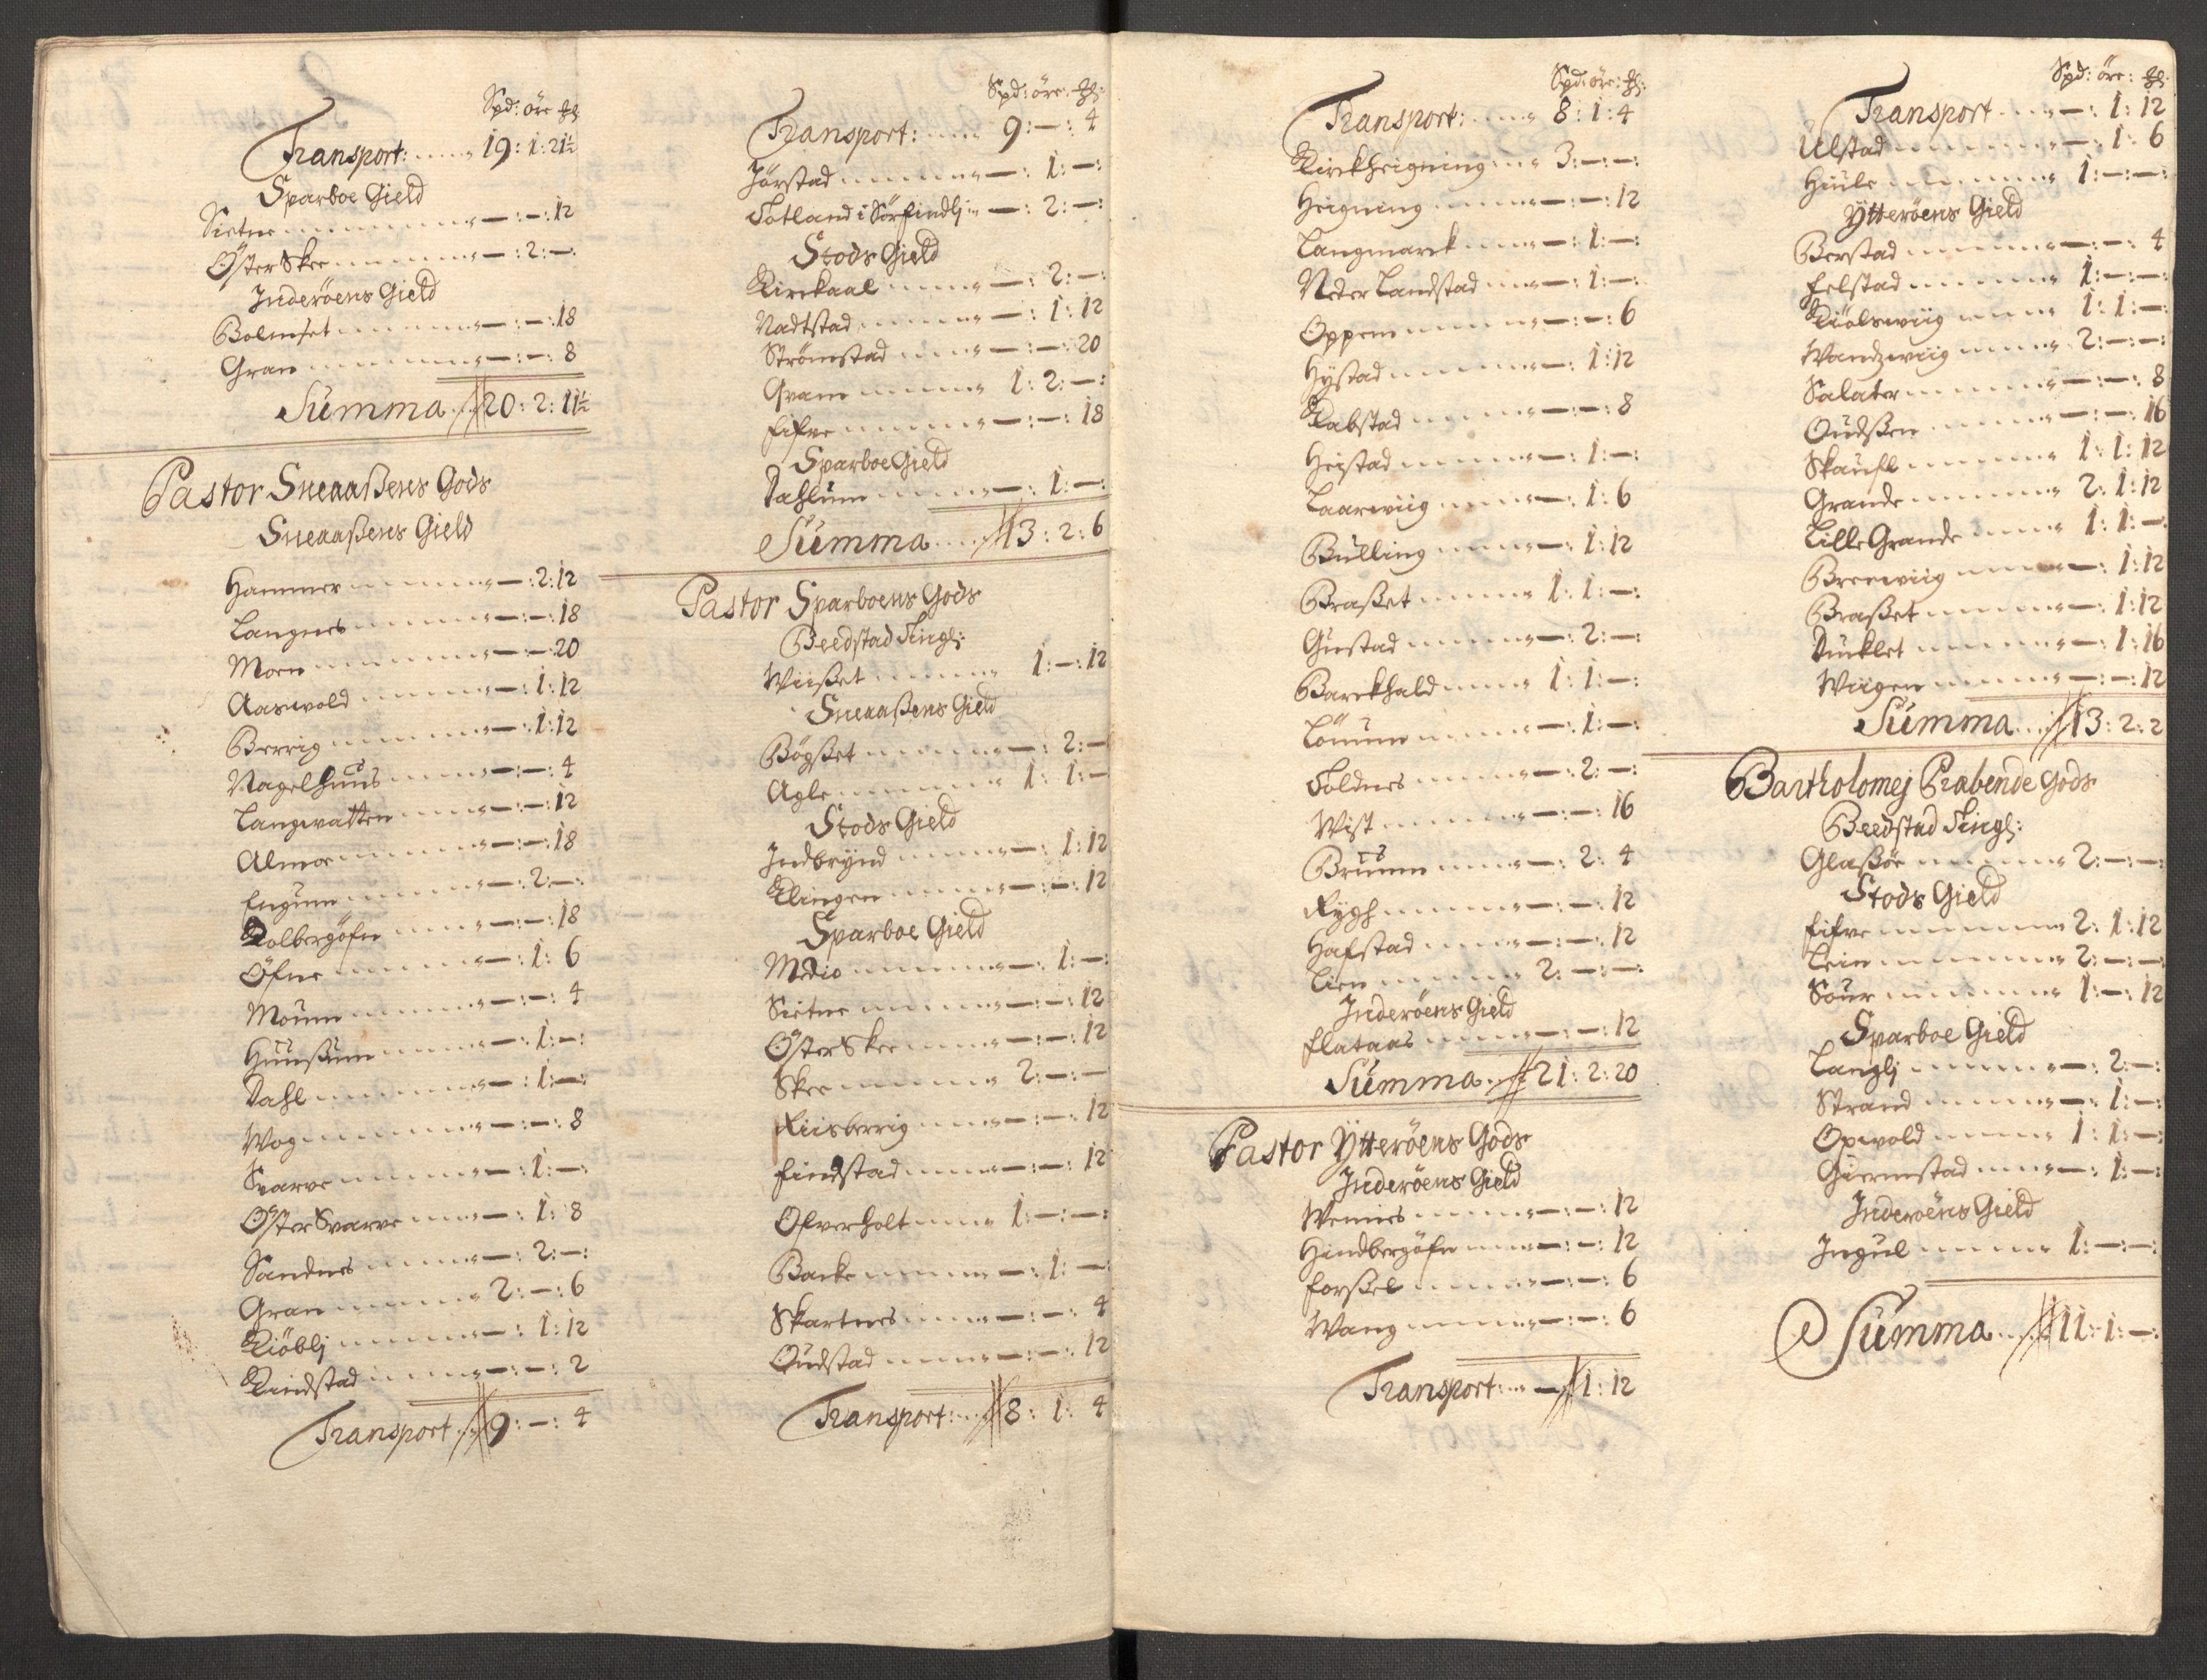 Spd: öre ₰
Transport: 19: 1: 21½
Sparboe Gield
Sietne —:—: 12
Öster Skee —: 2:—:
Inderöens Gield
Bolmset —:—: 18
Gran —:—: 8
Summa 20: 2: 11½
Pastor Sneaaßens Gods
Sneaaßens Gield
Hammer —: 2: 12
Langnes —:—: 18
Moen —:—: 20
Aaswold —: 1: 12
Berrig —: 1: 12
Nagelhuus —:—: 4
Langwatten —:—: 12
Almoe —:—: 18
Engum —: 2:—:
Kolbergöfn —:—: 18
Öfne —: 1: 6
Moum —:—: 4
Huusßum —: 1:—:
Dahl —: 1:—:
Wog —:—: 8
Svarve —: 1:—:
Öster Svarve —: 1: 8
Sandnes —: 2:—:
Gran 2:—: 6
Kiöblj —: 1: 12
Kindstad —:—: 2
Transport 9:—: 4
Spd: öre: ₰:
Transport: 9:—: 4
Jörstad —: 1:—:
Totland i Sörfindlj —: 2:—:
Stods Gield
Kirkaal —: 2:—:
Nadtstad —: 1: 12
Strömstad —:—: 20
Qvam 1: 2:—:
Fifve —:—: 18
Sparboe Gield
Dahlum —: 1:—:
Summa 13: 2: 6
Pastor Sparboens Gods
Beedstad Tingl:
Wiißet 1:—: 12
Sneaaßens Gield
Bögßet —: 2:—
Agle 1: 1:—
Stods Gield
Indbrynd —: 1: 12
Klingen —:—: 12
Sparboe Gield
Medio —: 1:—:
Sietne —:—: 12
Öster Skee —:—: 12
Skee 2:—:—
Riisberrig —:—: 12
Findstad —:—: 12
Ofverholt 1:—:—:
Backe —: 1:—:
Skartnes —:—: 4
Oudstad —:—: 12
Transport: 8: 1: 4
Spd: öre: ₰:
Transport: 8: 1: 4
Kirckheigning 3:—:—:
Heigning —:—: 12
Langmarck —: 1:—:
Neder Landstad —: 1:—:
Oppem —:—: 6
Hÿstad —: 1: 12
Kabstad —:—: 8
Heistad —: 1:—:
Laarwiig —: 1: 6
Bulling —: 1: 12
Braßet 1: 1:—:
Giestad —: 2:—:
Barckhald 1: 1:—:
Löuum —: 1:—:
Toldnes —: 2:—:
Wist —:—: 16
Bruum —: 2: 4
Rygh —:—: 12
Hafstad —:—: 12
Lien 2:—:—:
Inderöens Gield
Flataas —:—: 12
Summa 21: 2: 20
Pastor Ytteröens Gods
Inderöens Gield
Wennes —:—: 12
Hindbergöfn —:—: 12
Forßel —:—: 6
Wang —:—: 6
Transport: — 1: 12
Spd: öre: ₰:
Transport —: 1: 12
Ulstad —: 1: 6
Hiule 1:—:—:
Ytteröens Gield
Berstad —:—: 4
Felstad 1:—:—:
Kiölswiig 1: 1:—:
Wandzwiig 2:—:—:
Salater —:—: 8
Oudßen —:—: 16
Skaufl 1: 1: 12
Grande 2: 1: 12
Lille Grande 1: 1:—
Breewiig —: 1: 12
Braßet —: 1: 12
Duklet —: 1: 16
Wiigen —:—: 12
Summa 13: 2: 2
Bartholomej Præbende Gods
Beedstad Tingl:
Glaßöe 2:—:—:
Stods Gield
Fifve 2: 1: 12
Lein 2:—:—
Sour 1:—: 12
Sparboe Gield
Langlj —: 2:—:
Strand —: 1:—:
Opwold 1: 1:—:
Giermstad —: 1:—:
Inderöens Gield
Ingul 1:—:—:
Summa 11: 1:—: